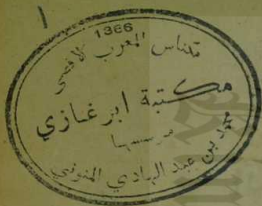 1366
بمكناس المغرب الاقصى
مكتبة ابن غازي
مؤسسها
محمد بن عبد الهادي المنوني